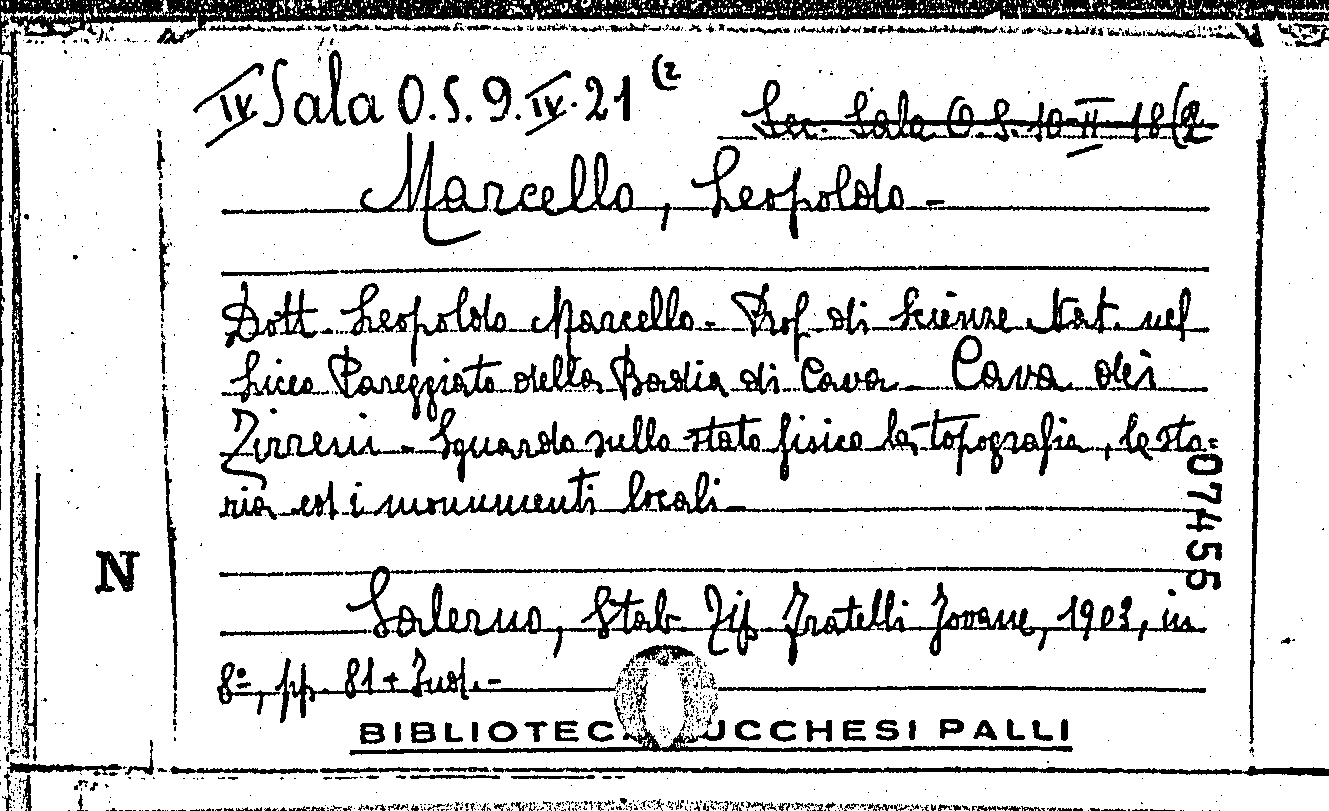 IV Sala O.S. 9. IV. 21 (2
Sec. Sala O.S. 10-II-18(2
Marcello, Leopoldo -
Dott. Leopoldo Marcello - Prof. di Scienze Nat. nel
Liceo Pareggiato della Badia di Cava - Cava dei
Tirreni - Sguardo sullo stato fisico la topografia, la sto-
ria ed i monumenti locali -
Salerno, Stab. Tip. Fratelli Jovane, 1903, in
8º, pp. 81 + Ind. -
07455
N
BIBLIOTECA LUCCHESI PALLI